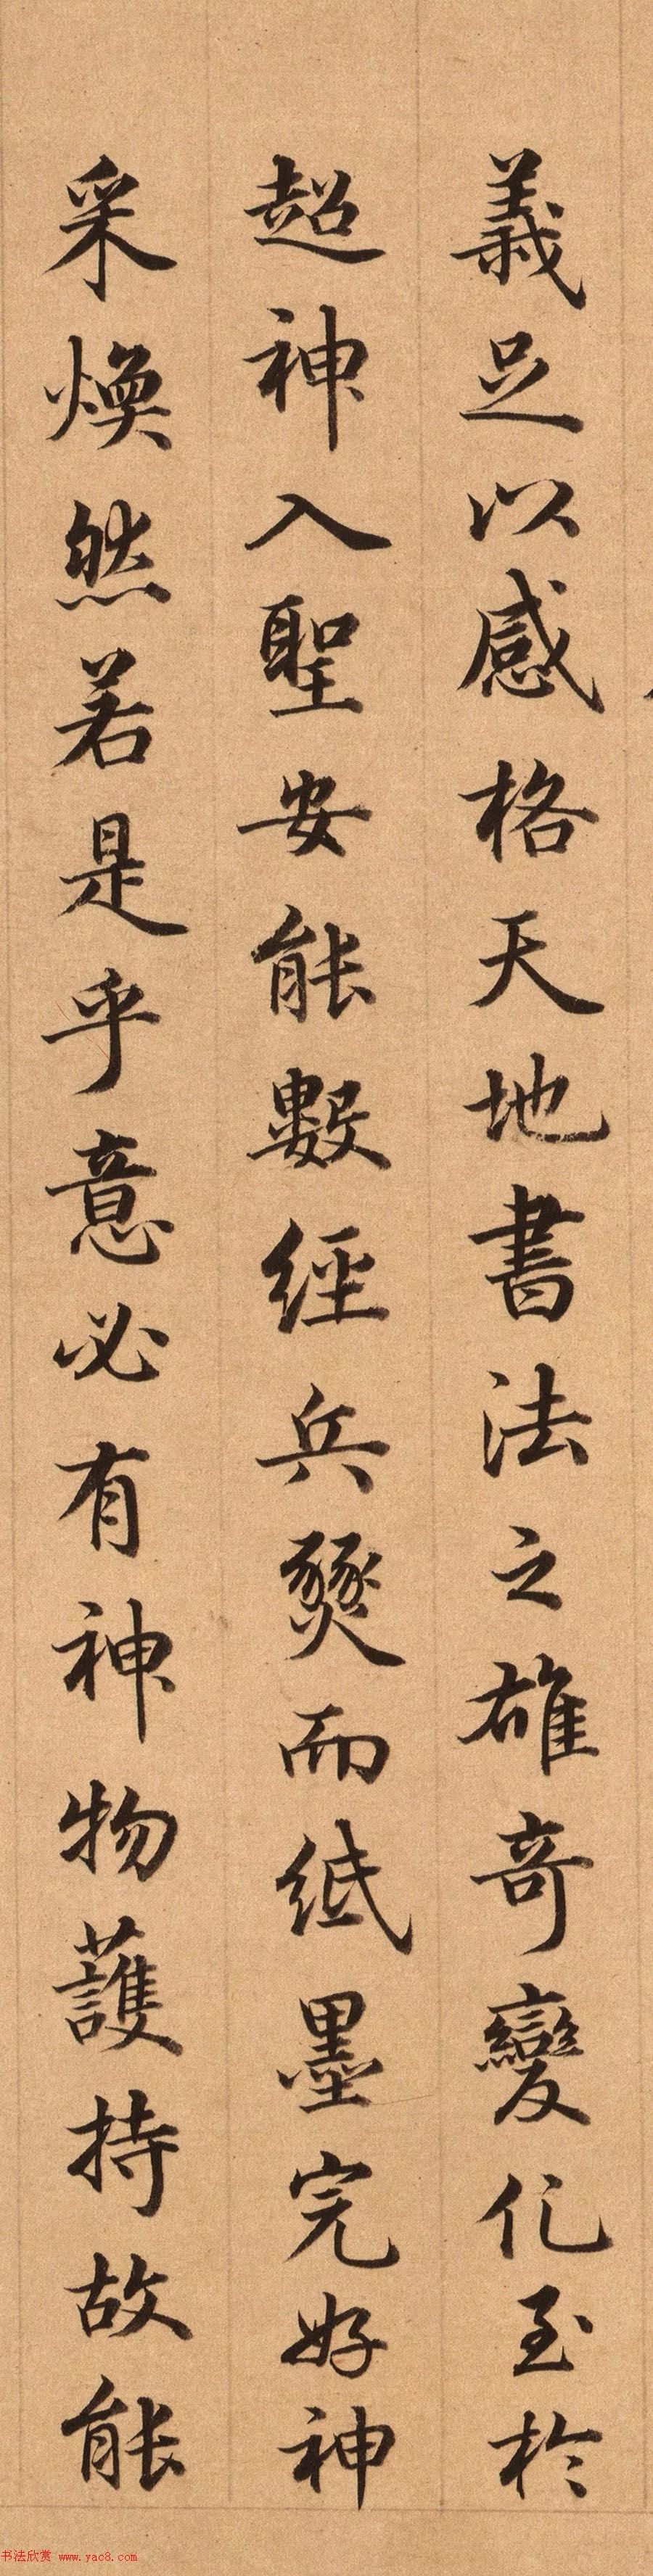 義足以感格天地書法之雄奇變化至於
超神入聖安能數經兵燹而紙墨完好神
采煥然若是乎意必有神物護持故能
书法欣赏 www.yac8.com